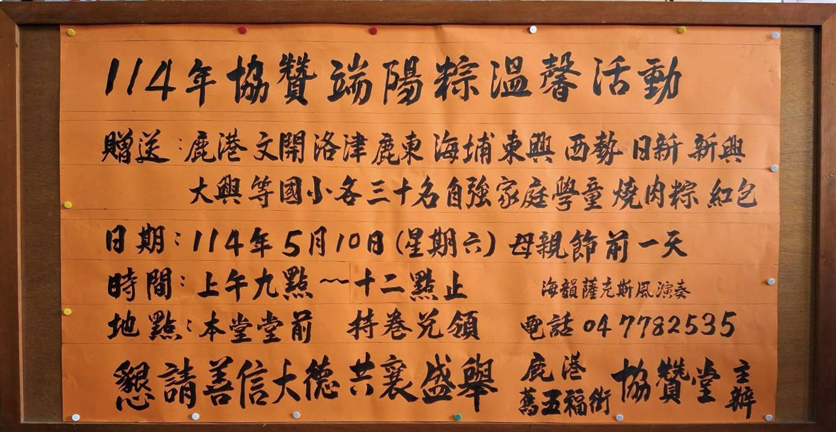 114年協贊端陽粽溫馨活動
贈送:鹿港 文開 洛津 鹿東 海埔 東興 西勢 日新 新興
大興等國小各三十名自強家庭學童 燒肉粽 紅包
日期:114年5月10日(星期六)母親節前一天
時間:上午九點~十二點止 海韻薩克斯風演奏
地點:本堂堂前 持卷兌領 電話 04 7782535
懇請善信大德共襄盛舉 鹿港 協贊堂 主辦
五福街